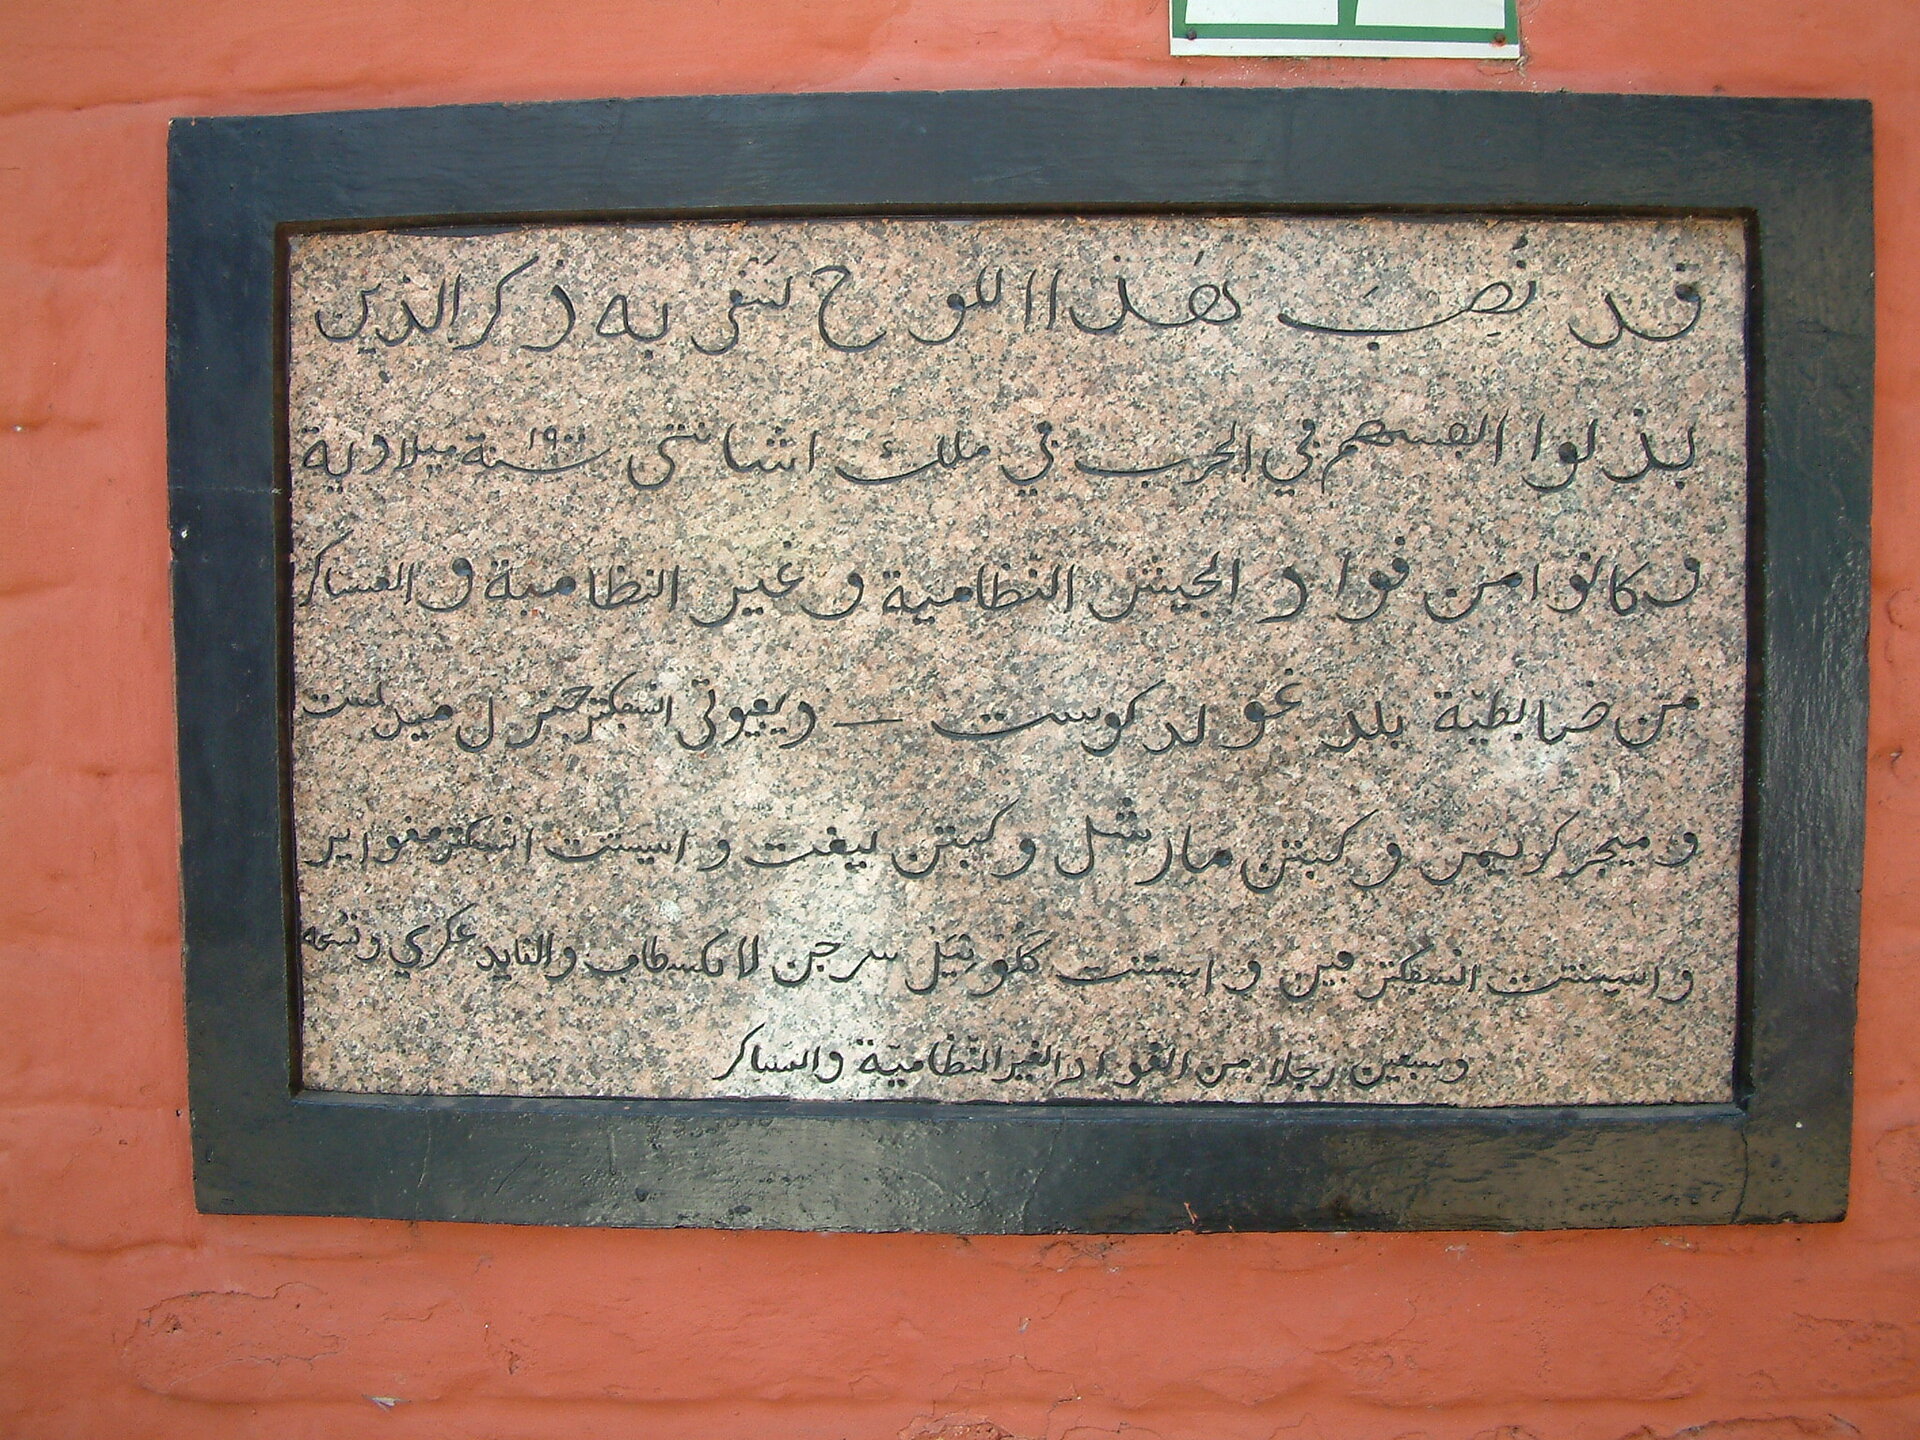 قد نُصِبَ هَذا اللوح لتنفر به ذكر الذين
بذلوا انفسهم في الحرب في ملك اشانتى سنة ١٩٠٠ ميلادية
وكانوا من قواد الجيش النظامية وغير النظامية والعساكر
من ضابطيّة بلد غولد كوست — ويعوتى انسفكتر جنرل ميد لمست
وميجر كريمر وكبتن مارشل وكبتن ليغت واسيستنت انسفكتر مغواير
واسيستنت انسفكتر فين واسيستنت كلونيَل سرجن لانكسطاب والنايد عكري وتسعة
وسبعين رجلا من القواد الغير النظاميّة والعساكر